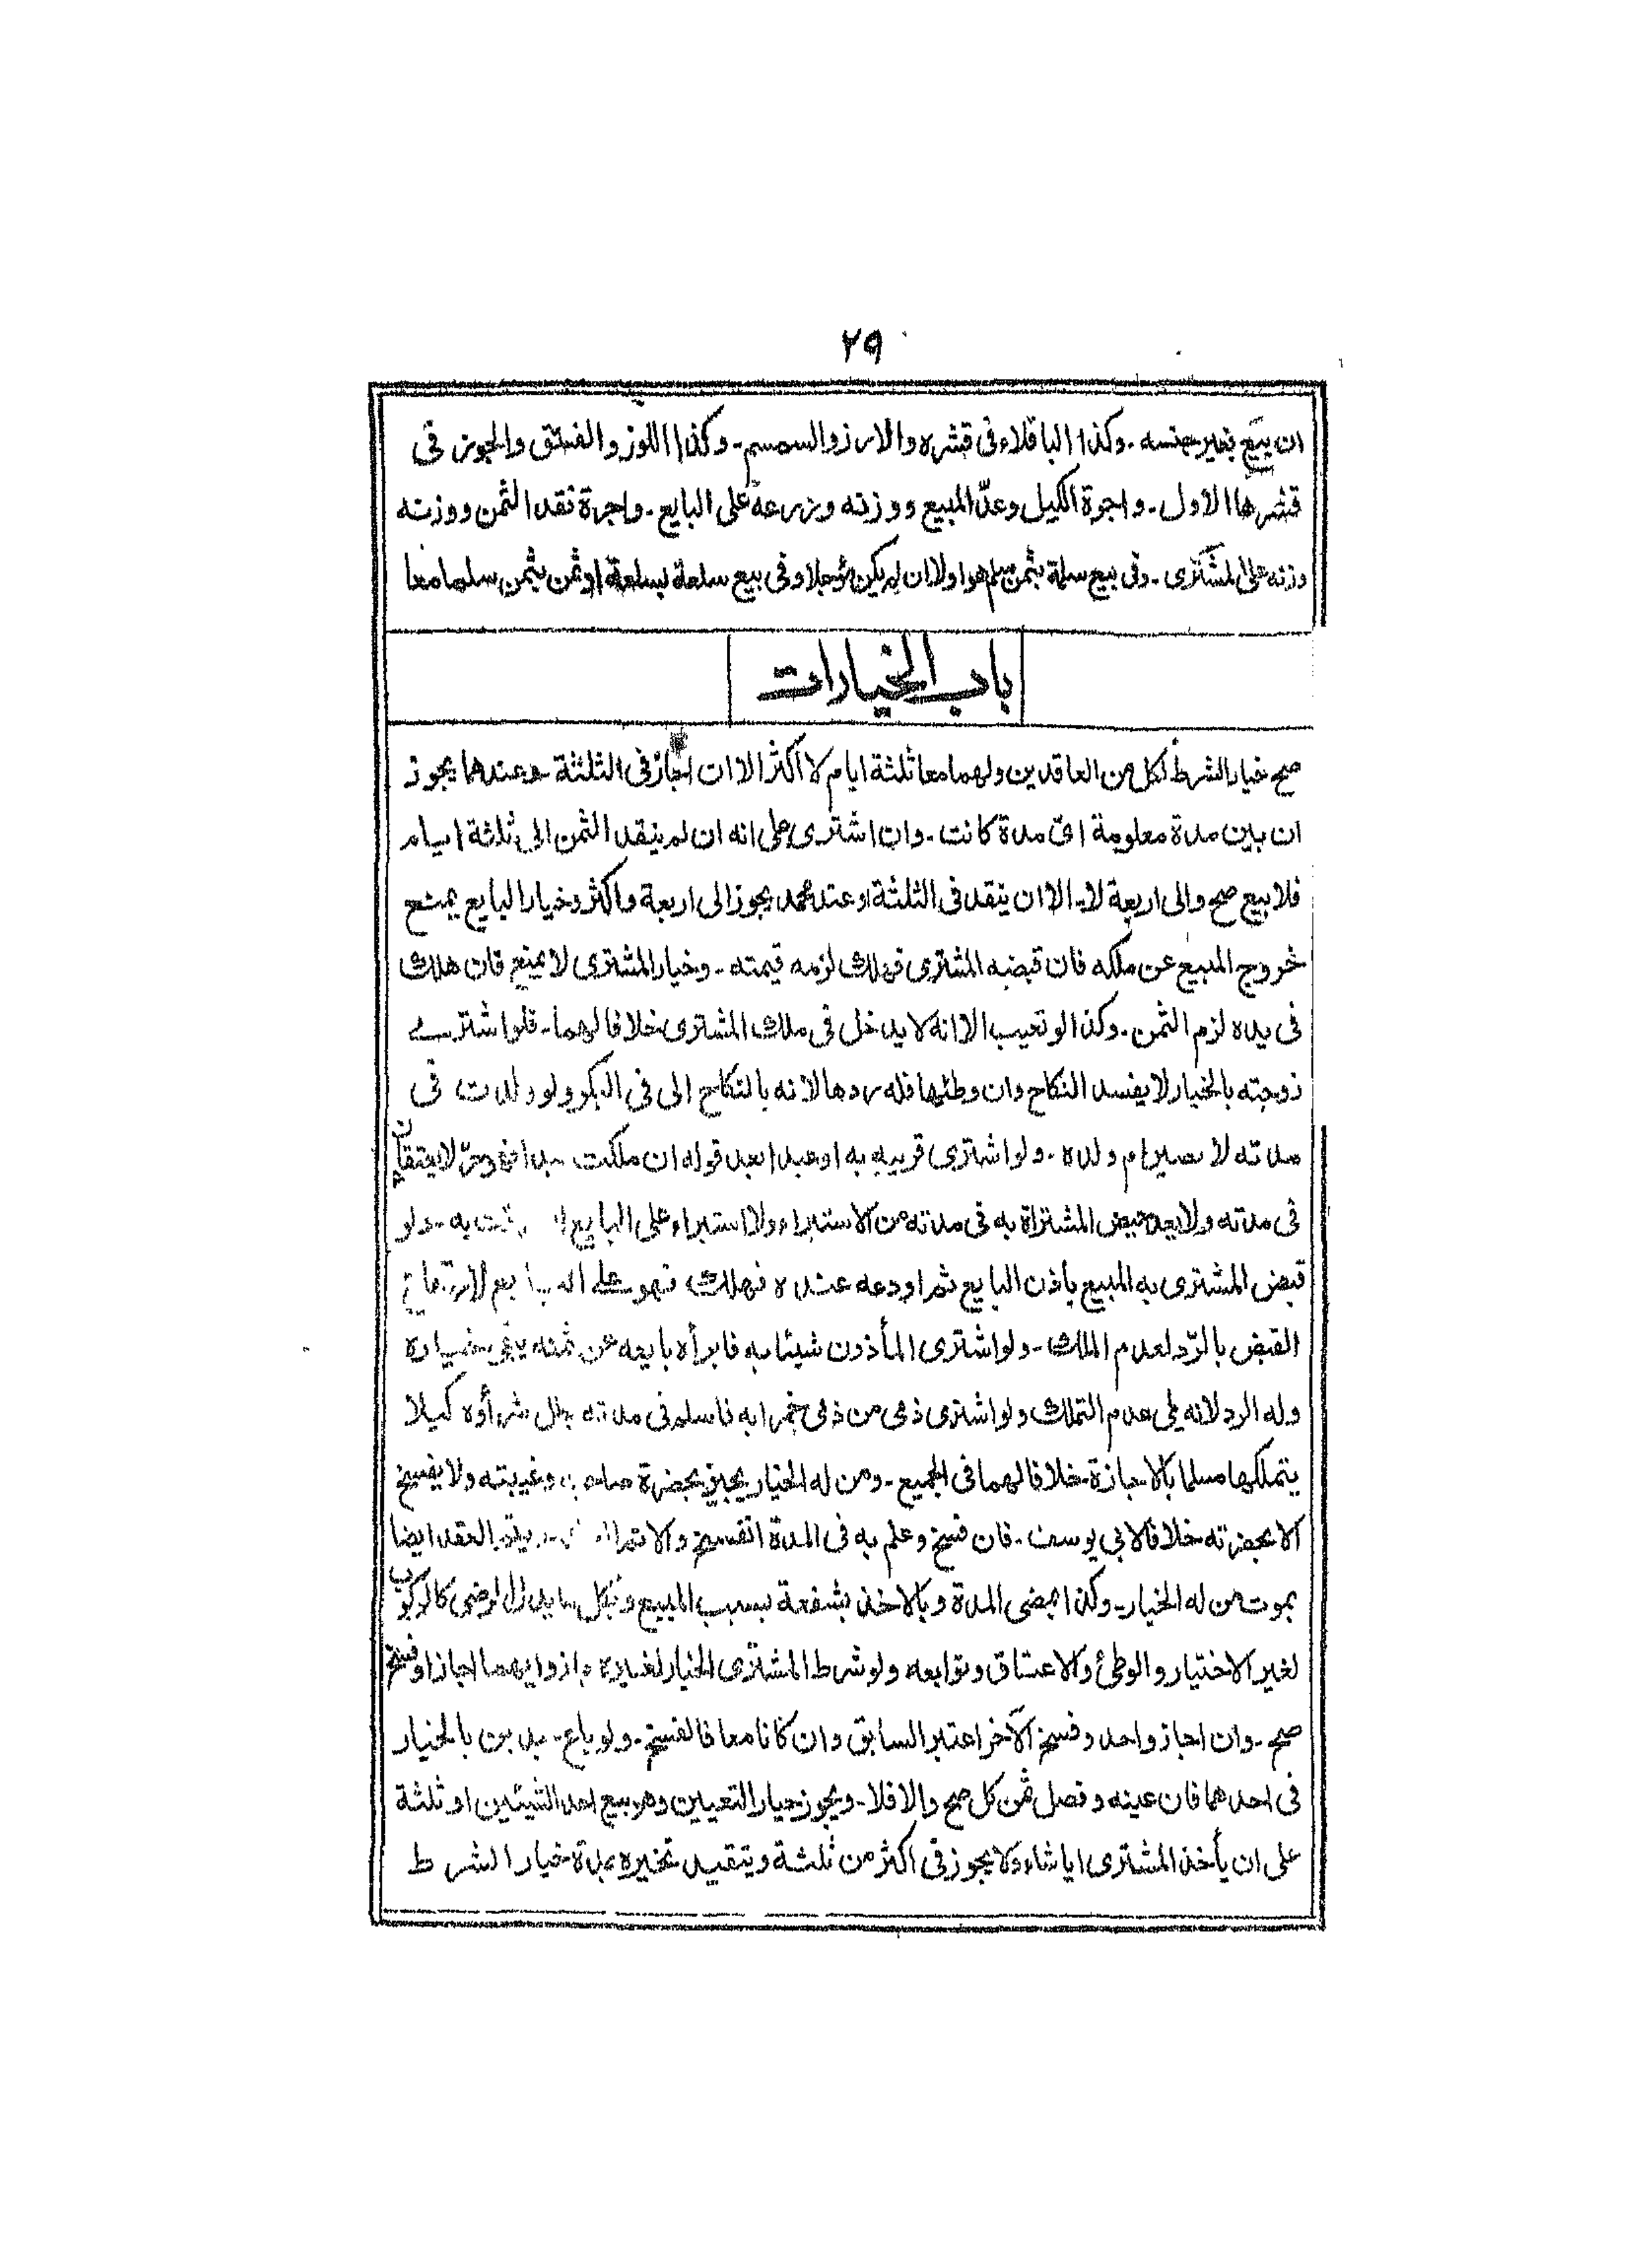 ٢٩
ان يبيع بغير جنسه ـ وكذا الباقلاء فى قشره والارز والسمسم ـ وكذا اللوز والفستق والجوز فى
قشرها الاول ـ واجرة الكيل وعدّ المبيع ووزنه وزرعه على البايع ـ واجرة نقد الثمن ووزنه
وزنه على المشترى ـ وفى بيع سلعة بثمن سلم هو اولا ان لم يكن مؤجلا وفى بيع سلعة بسلعة او ثمن بثمن سلما معا
باب الخيارات
صح خيار الشرط لكل من العاقدين ولهما معا ثلثة ايام لا اكثر الا ان اجاز فى الثلثة ـ وعندهما يجوز
ان بين مدة معلومة اىّ مدة كانت ـ وان اشترى على انه ان لم ينقد الثمن الى ثلثة ايام
فلا بيع صح والى اربعة لا ـ الا ان ينقد فى الثلثة وعند محمد يجوز الى اربعة واكثر وخيار البايع يمنع
خروج المبيع عن ملكه فان قبضه المشترى فهلك لزمه قيمته ـ وخيار المشترى لا يمنع فان هلك
فى يده لزم الثمن ـ وكذا لو تعيب الا انه لا يدخل فى ملك المشترى خلافا لهما ـ فلو اشترى
زوجته بالخيار لا يفسد النكاح وان وطئها فله ردها لانه بالنكاح الى فى البكر ولو ولدت فى
مدته لا تصير ام ولده ـ ولو اشترى قريبه به او عبدا بعد قوله ان ملكت عبدا فهو حرّ لا يعتقان
فى مدته ولا يعد حيض المشتراة به فى مدته من الاستبراء ولا استبراء على البايع ان ردت به ـ ولو
قبض المشترى به المبيع باذن البايع ثم اودعه عنده فهلك فهو على البايع لارتفاع
القبض بالردّ لعدم الملك ـ ولو اشترى المأذون شيئا به فابرأه بايعه عن ثمنه بقى خياره
وله الرد لانه على عدم التملك ولو اشترى ذمى من ذمى خمرا به فاسلم فى مدته بطل شرأوه كيلا
يتملكها مسلما بالاجازة ـ خلافا لهما فى الجميع ـ ومن له الخيار يجيز بحضرة صاحبه وغيبته ولا يفسخ
الا بحضرته خلافا لابى يوسف ـ فان فسخ وعلم به فى المدة انفسخ والا تم ويتم العقد ايضا
بموت من له الخيار ـ وكذا بمضى المدة وبالاخذ بشفعة بسبب المبيع وبكل ما يدل الرضى كالركوب
لغير الاختيار والوطئ والاعتاق وتوابعه ولو شرط المشترى الخيار لغيره جاز وايهما اجاز او فسخ
صح ـ وان اجاز واحد وفسخ الآخر اعتبر السابق وان كانا معا فالفسخ ـ ولو باع عبدين بالخيار
فى احدهما فان عينه وفصل ثمن كل صح والا فلا ـ ويجوز خيار التعيين وهو بيع احد الشيئين او ثلثة
على ان يأخذ المشترى ايا شاء ولا يجوز فى اكثر من ثلثة ويتقيد تخيره بمدة خيار الشرط